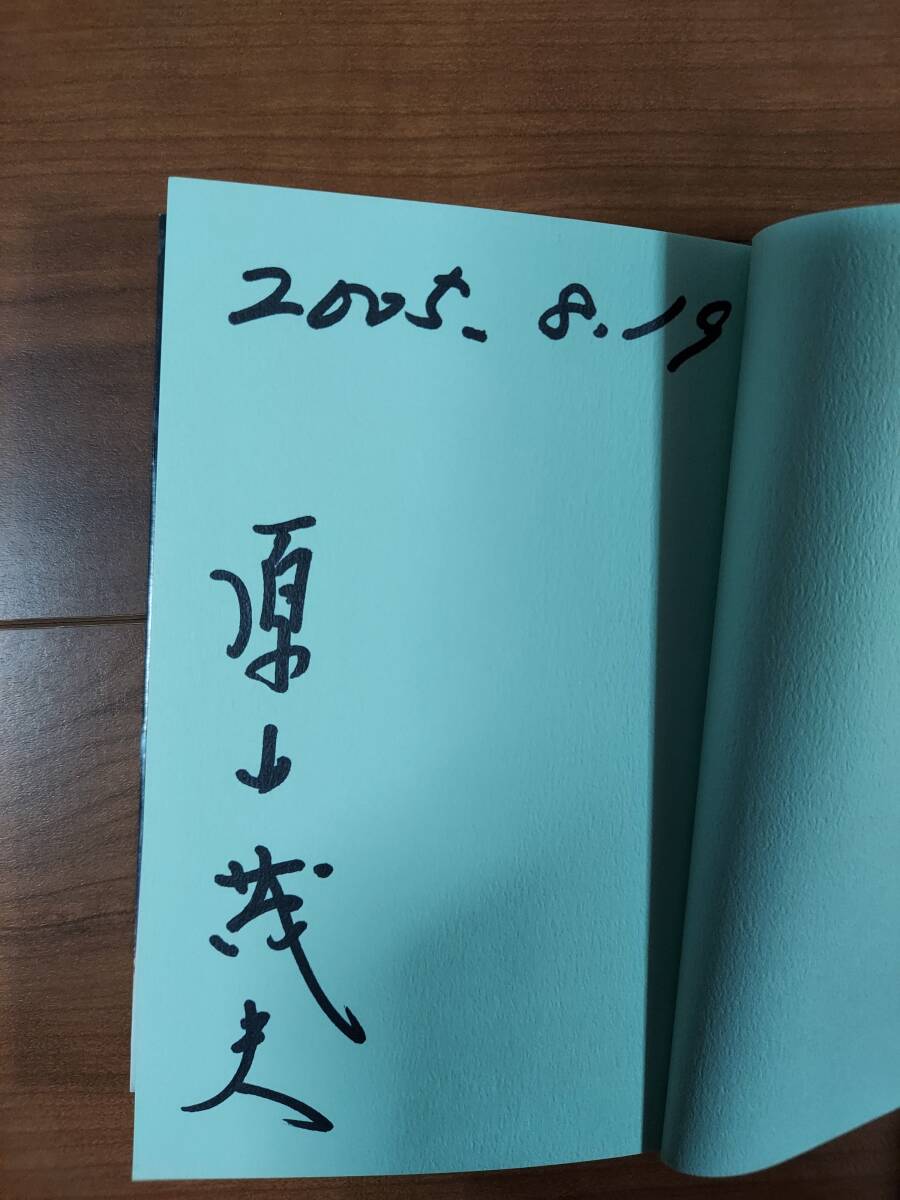 2005.8.19
原山茂夫